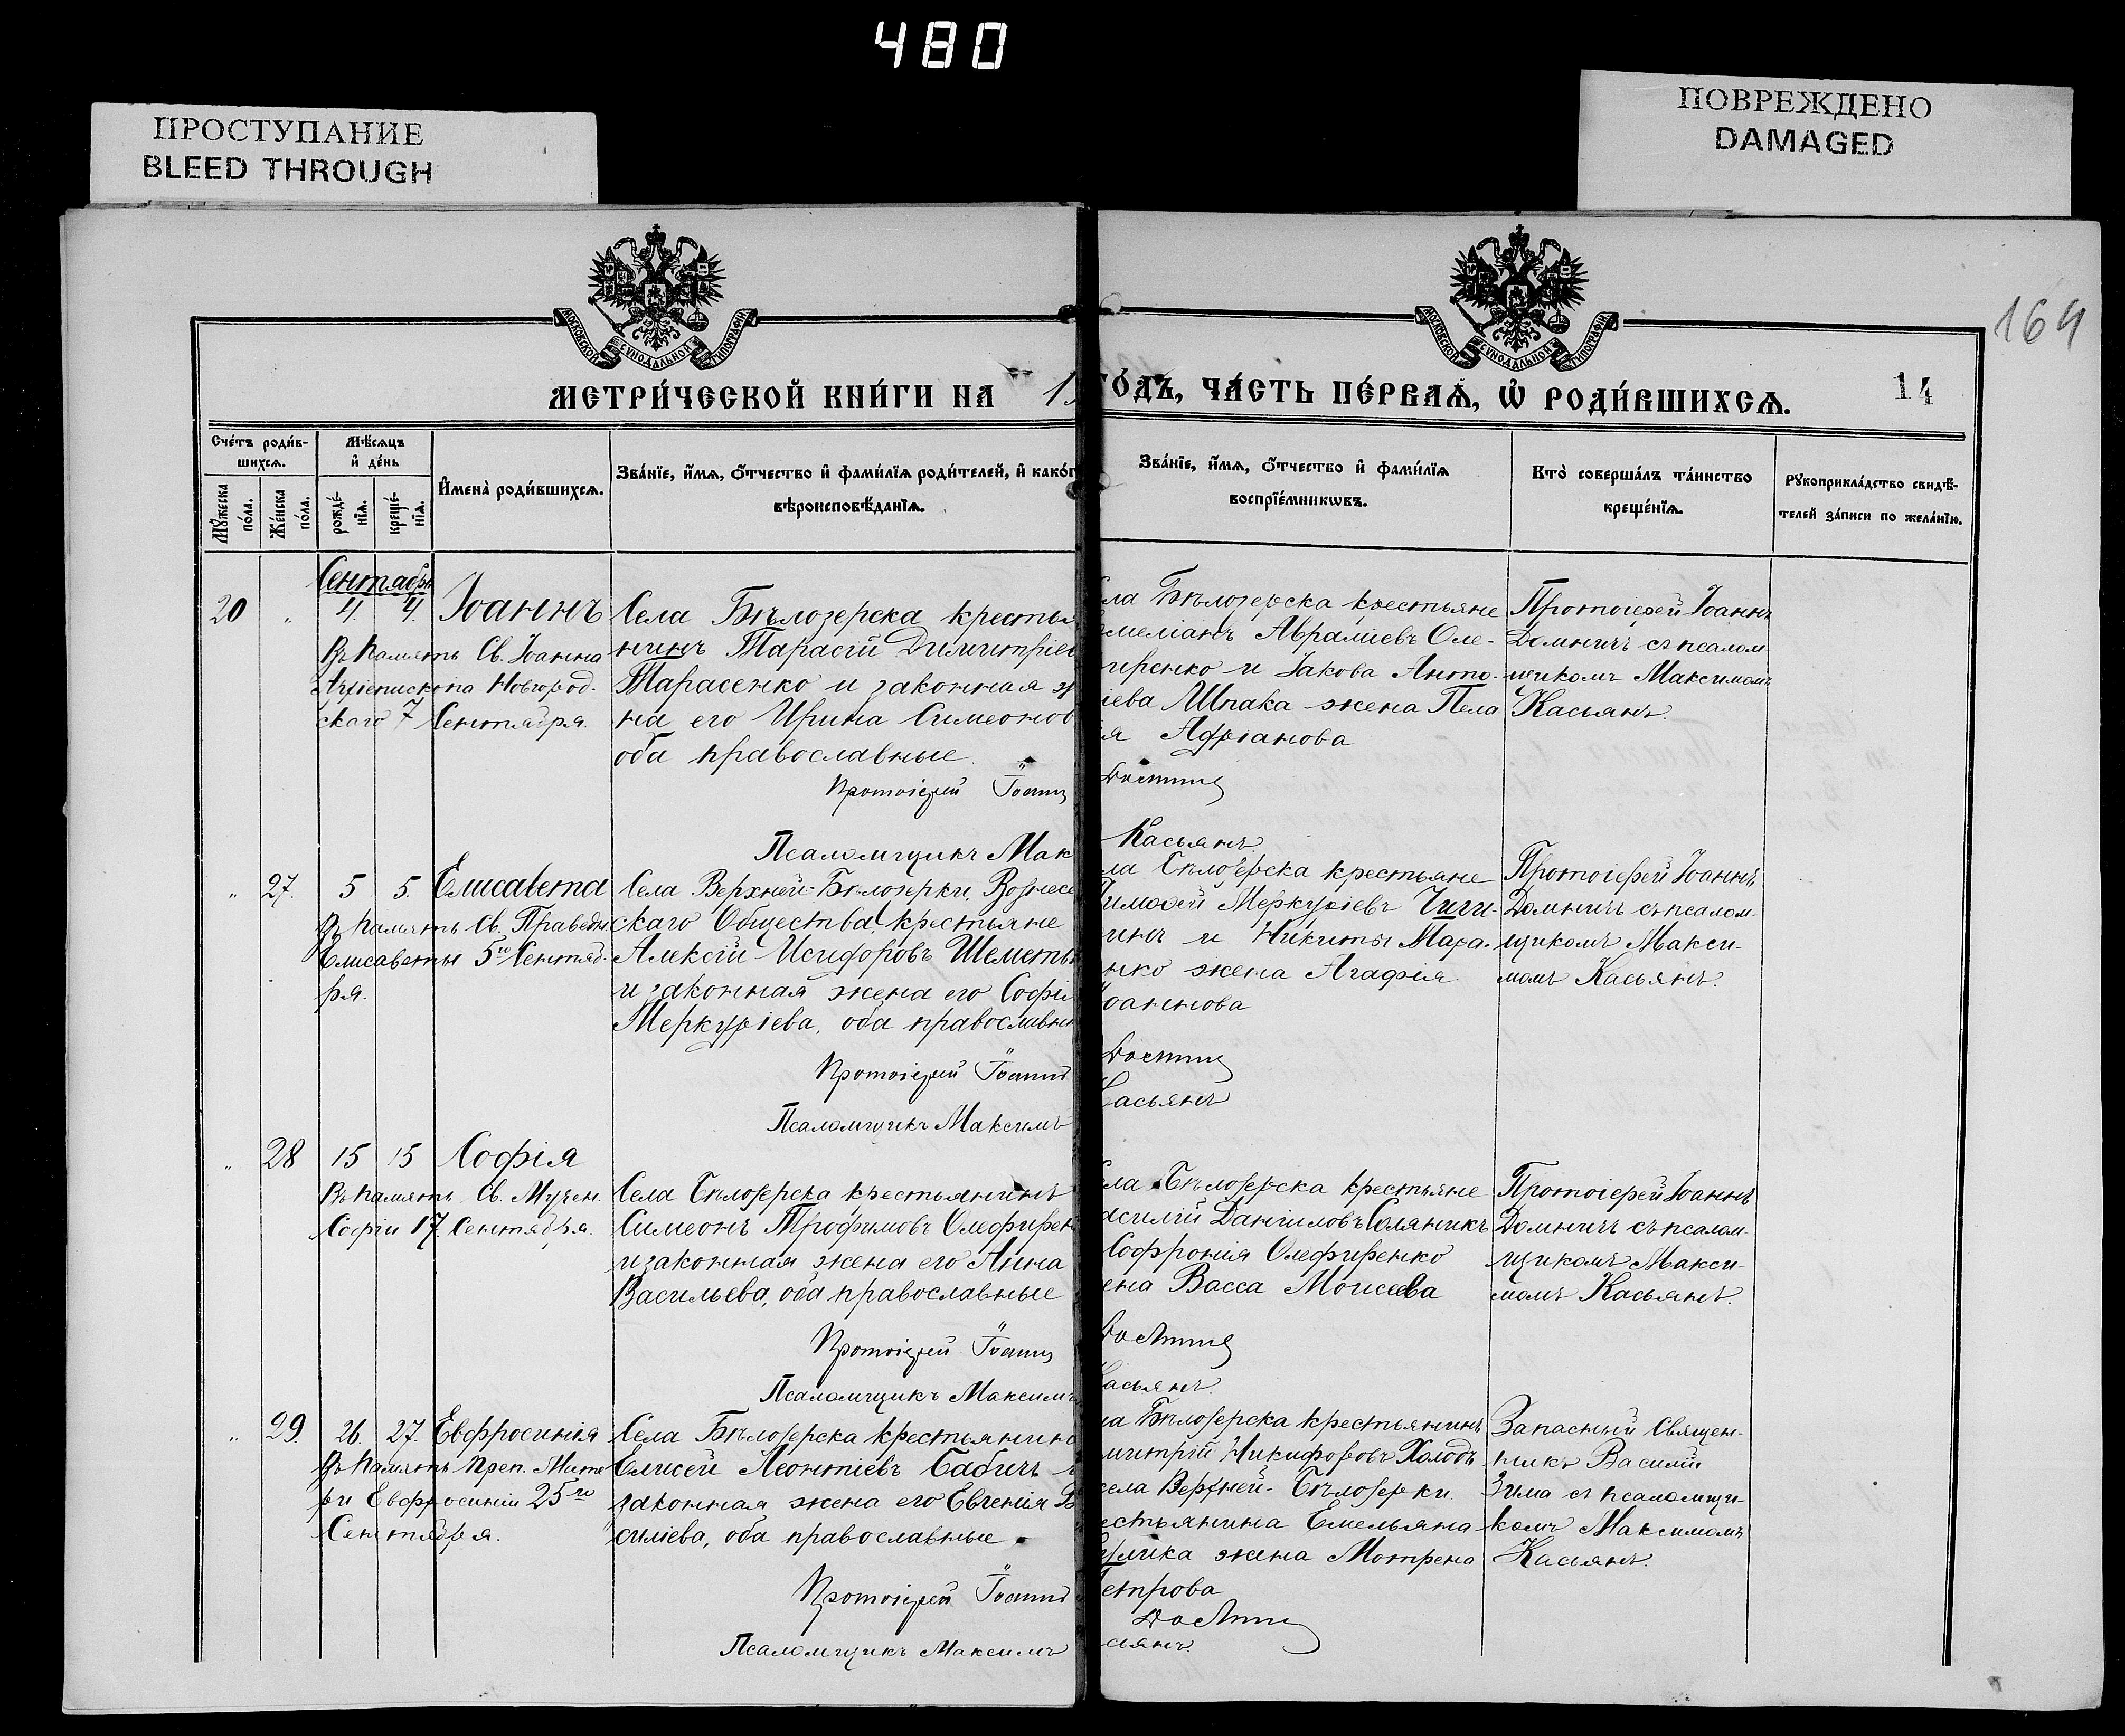 480
ПРОСТУПАНИЕ
BLEED THROUGH
ПОВРЕЖДЕНО
DAMAGED
164
МОСКОВСКОЙ СѴНОДАЛЬНОЙ ТИПОГРАФІИ
МОСКОВСКОЙ СѴНОДАЛЬНОЙ ТИПОГРАФІИ
МЕТРИ́ЧЕСКОЙ КНИ́ГИ НА 1
ГО́ДЪ, ЧА́СТЬ ПЕ́РВАѦ, Ѡ҆ РОДИ́ВШИХСѦ.
14
Сче́тъ роди́в-
шихсѧ.
Мꙋжеска по́ла.
Же́нска по́ла.
Мѣ́сѧцъ
и҆ де́нь
рожде́-
нїѧ.
креще́-
нїѧ.
И҆мена̀ роди́вшихсѧ.
Зва́нїе, и҆́мѧ, ѻ҆́тчество и҆ фами́лїѧ роди́телей, и҆ како́г
вѣроисповѣ́данїѧ.
Зва́нїе, и҆́мѧ, ѻ҆́тчество и҆ фами́лїѧ
воспрїе́мникѡвъ.
Кто̀ соверша́лъ та́инство
креще́нїѧ.
Рꙋкоприкла́дство свидѣ́-
телей за́писи по жела́нїю.
Сентябрь
20 " 4. 4. Іоаннъ
Въ память Св. Іоанна
Архіепископа Новгород-
скаго 7 Сентября.
Села Бѣлозерска крестья
нинъ Тарасій Димитріев
Тарасенко и законная же
на его Ирина Симеонов
оба православные.
Протоіерей Іоанн
Псаломщикъ Мак
ла Бѣлозерска крестьяне
меліанъ Авраміевъ Оле-
фиренко и Іакова Анто-
іева Шпака жена Пела
я Адріанова
Домнич
Касьянъ.
Протоіерей Іоаннъ
Домничъ съ псалом
щикомъ Максимомъ
Касьянъ.
" 27. 5 5. Елисавета
Въ память Св. Праведн
Елисаветы 5го Сентяб-
ря.
Села Верхней-Бѣлозерки, Вознесен
скаго Общества, крестьяне
Алексій Исидоровъ Шеметь
и законная жена его Софі
Меркуріева, оба православн
Протоіерей Іоанн
Псаломщикъ Максимъ
ла Бѣлозерска крестьяне
Тимофей Меркуріевъ Чиги-
инъ и Никиты Мара-
нко жена Агафія
Іоаннова
Домнич
Касьянъ
Протоіерей Іоаннъ
Домничъ съ псалом-
щикомъ Макси-
момъ Касьянъ.
" 28 15 15 Софія
Въ память Св. Мучен.
Софіи 17 Сентября.
Села Бѣлозерска крестьянинъ
Симеонъ Трофимовъ Олефирен
и законная жена его Анна
Васильева, оба православные
Протоіерей Іоанн
Псаломщикъ Максимъ
ла Бѣлозерска крестьяне
асилій Даніиловъ Соляникъ
Софронія Олефиренко
ена Васса Моисеева
Домнич
Касьянъ.
Протоіерей Іоаннъ
Домничъ съ псалом-
щикомъ Макси-
момъ Касьянъ.
" 29. 26. 27. Евфросинія
Въ память Преп. Мате
ри Евфросиніи 25го
Сентября.
Села Бѣлозерска крестьянинъ
Елисей Леонтіевъ Бабичъ и
законная жена его Евгенія Ва
силіева, оба православные.
Протоіерей Іоанн
Псаломщикъ Максимъ
ла Бѣлозерска крестьянинъ
митрій Никифоровъ Холодъ
села Верхней-Бѣлозерки
естьянина Емельяна
улика жена Мотрена
Петрова
Домнич
сьянъ.
Запасный Священ-
никъ Василій
Зима съ псаломщи-
комъ Максимомъ
Касьянъ.